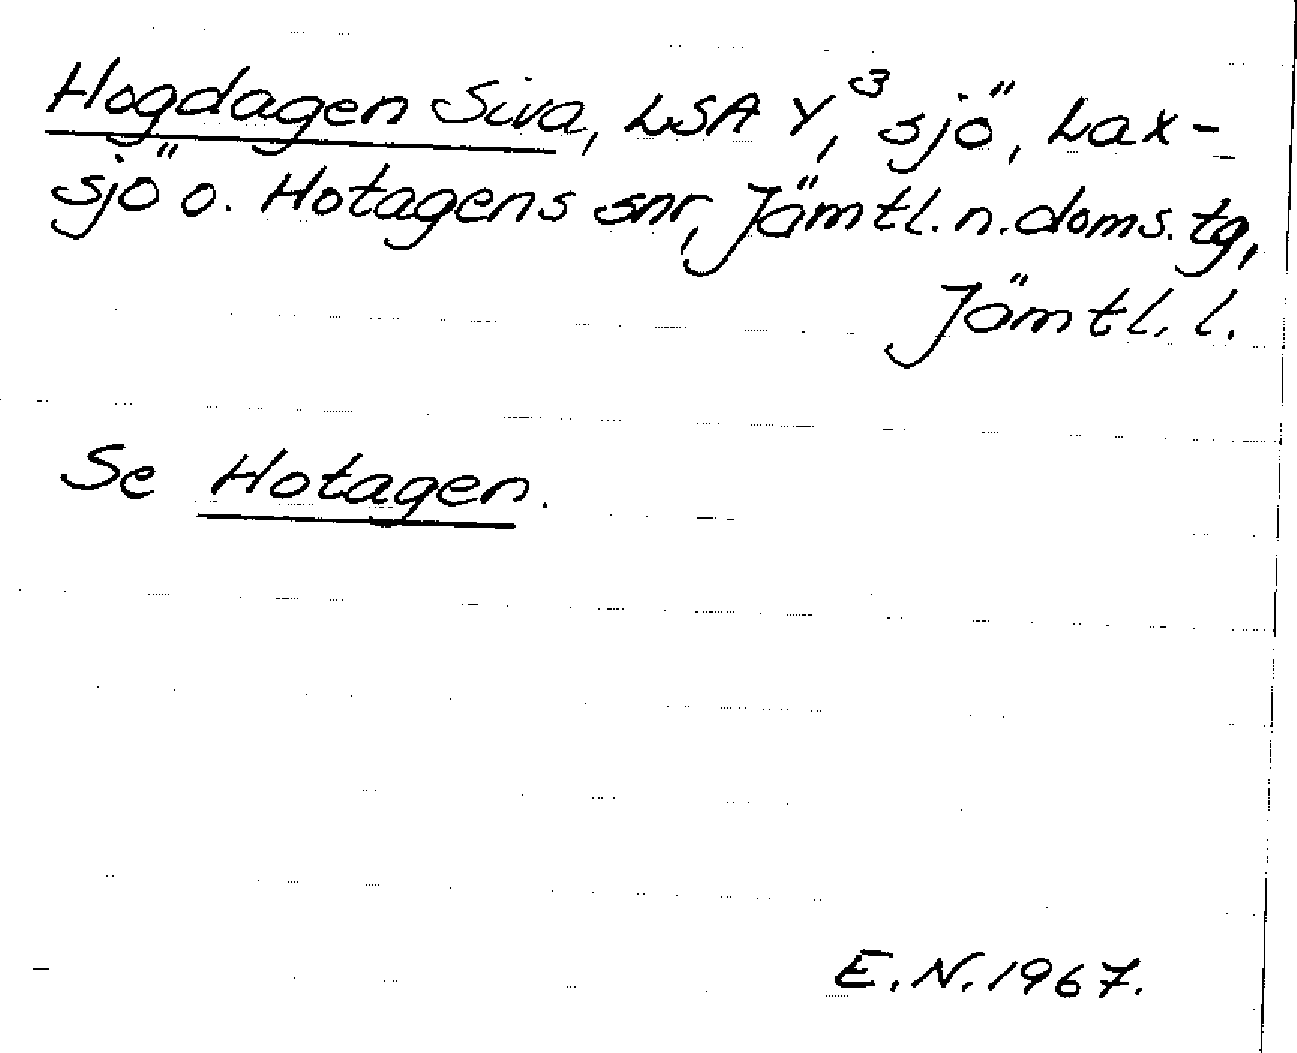 Hogdagen Siva, LSA Y,³ sjö, Lax-
sjö o. Hotagens snr, Jämtl. n. doms. tg,
Jämtl. l.
Se Hotagen.
E.N. 1967.